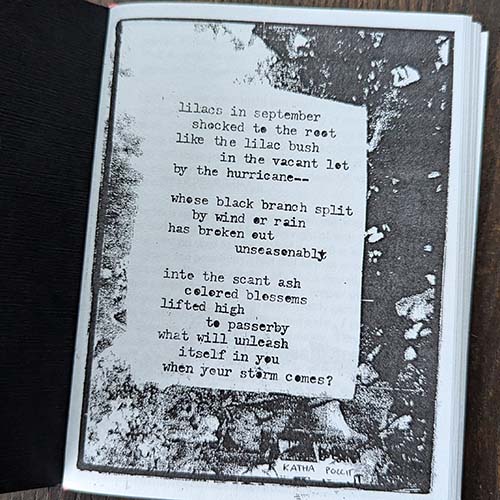 lilacs in september
shocked to the root
like the lilac bush
in the vacant lot
by the hurricane--
whose black branch split
by wind or rain
has broken out
unseasonably
into the scant ash
colored blossoms
lifted high
to passerby
what will unleash
itself in you
when your storm comes?
KATHA POLLIT